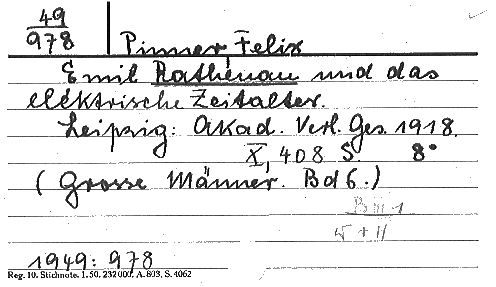 49
978
Pinner Felix
Emil Rathenau und das
elektrische Zeitalter.
Leipzig: Akad. Verl. Ges. 1918.
X, 408 S. 8°
(Grosse Männer. Bd 6.)
1949: 978
Reg. 10. Stichnote. 1. 50. 232 000. A. 803, S. 4062